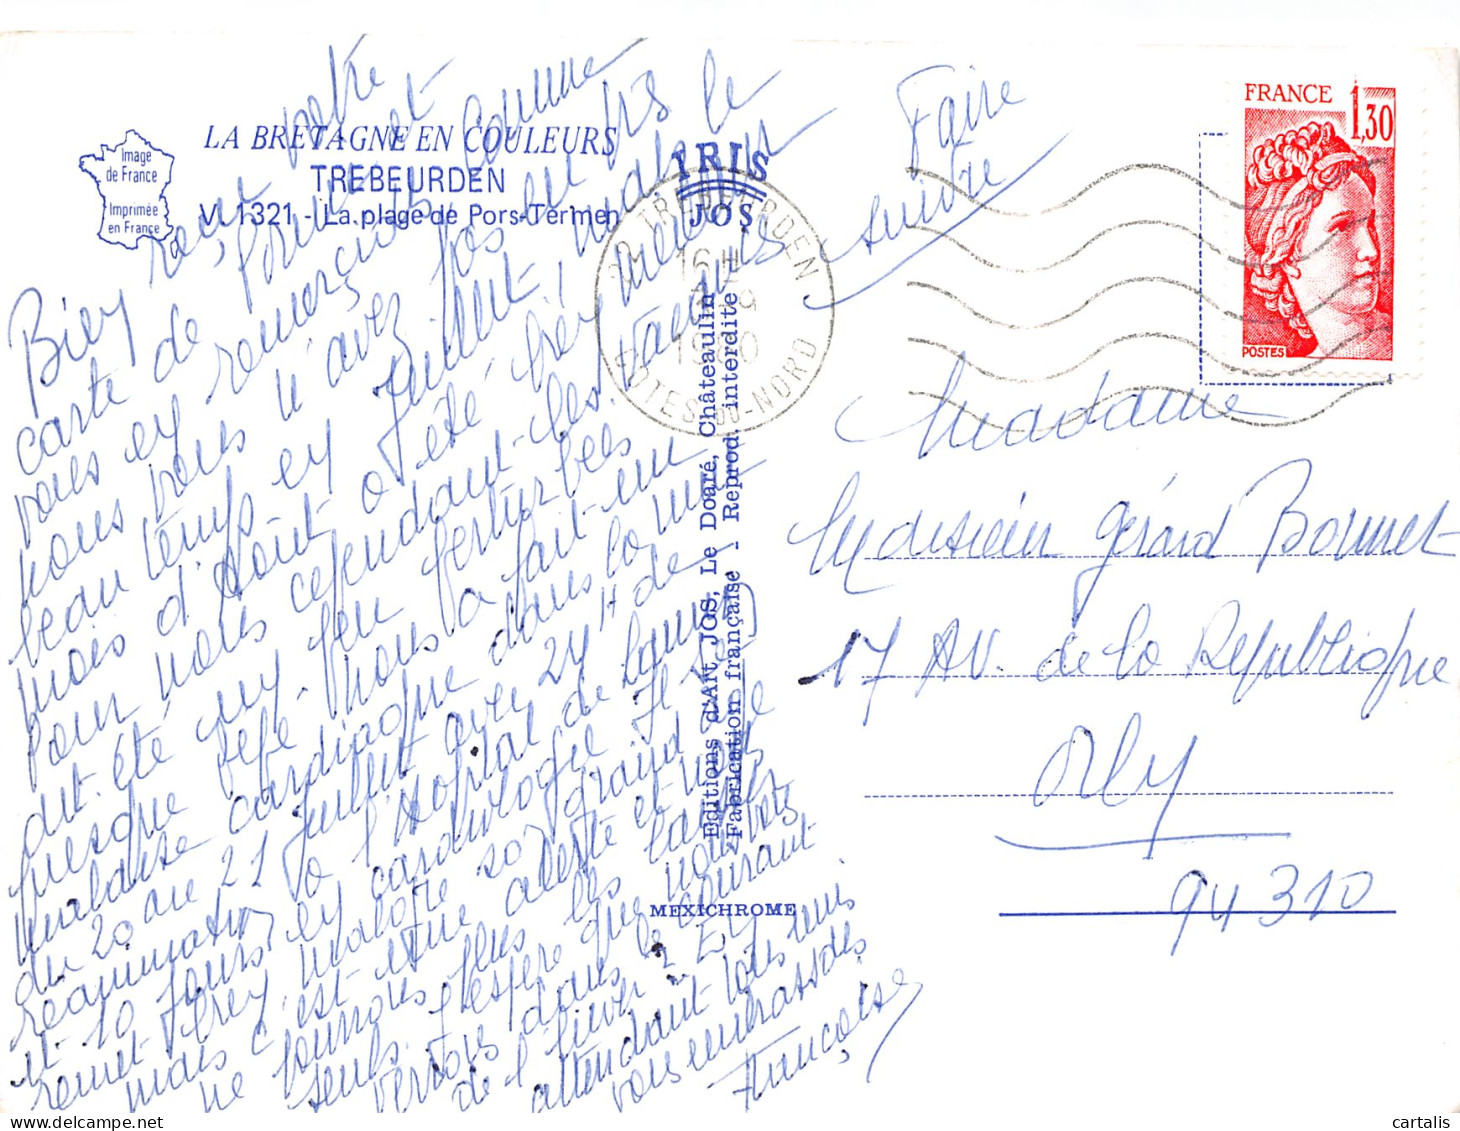 LA BRETAGNE EN COULEURS
TREBEURDEN
V. 1321 - La plage de Pors-Termen
Image
de France
Imprimée
en France
IRIS
JOS
Faire
suivre
FRANCE 1,30
POSTES
TREBEURDEN
16 H
1980
COTES-DU-NORD
Bien reçu votre
carte de et comme
vous en remerçions
nous vous l'avez pas eu très
beau temps en Juillet, mais le
mois d'Août a été très meilleur
pour nous cependant les vacances
ont été un peu perturbées
presque Pépé nous a fait un
malaise cardiaque dans la nuit
du 20 au 21 Juillet avec 24 H de
reanimation à l'Hôpital de Lannion
et 10 jours en cardiologie Il s'est
remet très malgré grand âge
mais c'est une alerte et nous
ne pourrons plus les laisser
seuls. J'espère que nous vous
verrons dans le courant
de l'hiver ? En
attendant tous
vous embrassons
Françoise
Madame
Monsieur Gérard Bonnet
17 Av. de la République
Orly
94310
Editions d'Art JOS, Le Doaré, Châteaulin
Fabrication française - Reprod. interdite
MEXICHROME
cartalis